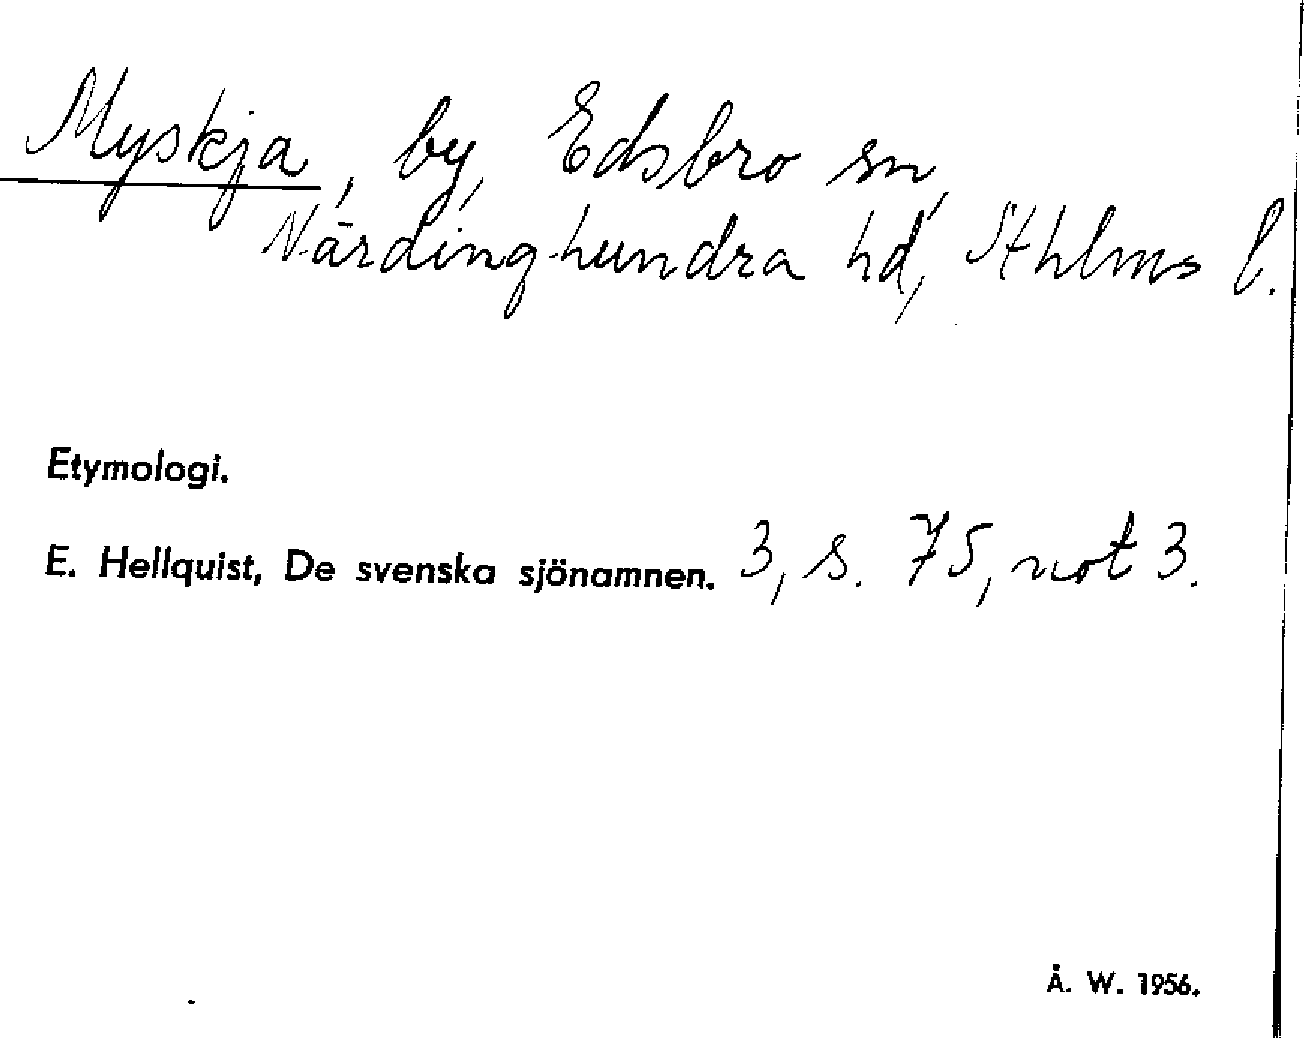 Myskja, by, Edsbro sn,
Närdinghundra hd, Sthlms l.
Etymologi.
E. Hellquist, De svenska sjönamnen. 3, s. 75, not 3.
Å. W. 1956.